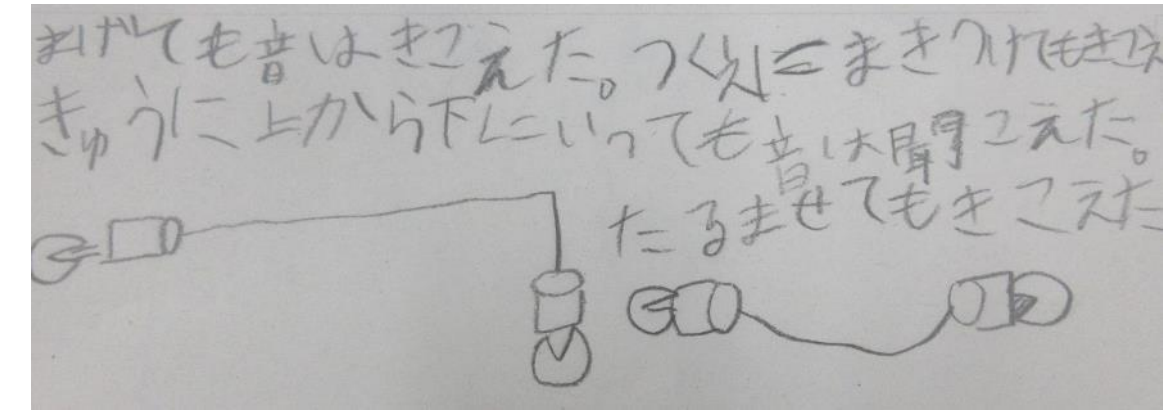 まげても音はきこえた。つくえにまきつけてもきこえ
きゅうに上から下にいっても音は聞こえた。
たるませてもきこえた